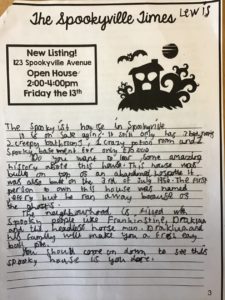 Lewis
The Spookyville Times
New Listing!
123 Spookyville Avenue
Open House
2:00-4:00pm
Friday the 13th
The Spookiist house in Spookyville
is on Sale again. It only has 2 bedrooms,
2 creepy bathrooms, a crazy potion room and a
Spooky basement for only
Do you want to hear some amazing
history about this house? This house was
built on top of an abandoned
was also built on the 3rd of July 1836. The first
person to own this house was named
Jeffry but he ran away because of
the ghosts.
The neighbourhood is filled with
Spooky people like Frankinstine, Drakula
and the headless horse man. Drakula and
his family will make you a fresh
You should come on down to see this
spooky house if you dare!
3